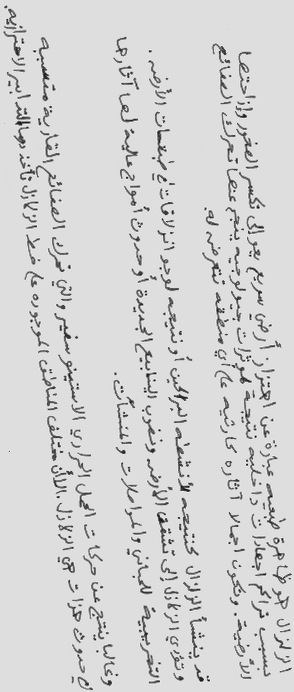 الزلزال هو ظاهرة طبيعية عبارة عن اهتزاز أرضي سريع يعود إلى تكسر الصخور وإزاحتها
بسبب تراكم اجهادات داخلية نتيجة لمؤثرات جيولوجية ينجم عنها تحرك الصفائح
الأرضية. وتكون اجمالا آثاره كارثية على أي منطقة تتعرض له.
قد ينشأ الزلزال كنتيجة لأنشطة البراكين أو نتيجة لوجود انزلاقات في طبقات الأرض.
وتؤدي الزلازل إلى تشقق الأرض ونضوب الينابيع الجديدة أو حدوث أمواج عالية لها آثارها
التخريبية للمباني والمواصلات والمنشآت.
وغالبا ينتج عن حركات الحمل الحراري الاستينوسفير والتي تحرك الصفائح القارية متسببة
في حدوث هزات هي الزلازل. الأن مختلف المناطق الموجودة على خط الزلازل تأخذ دوما التدابير الاحترازية.